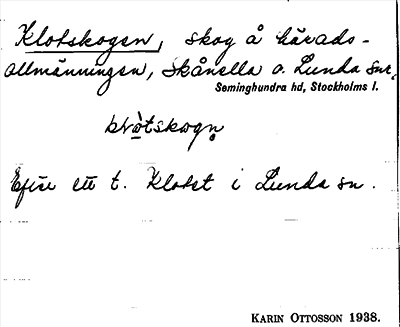 Klotskogen, skog å härads-
allmänningen, Skånella o. Lunda snr,
Seminghundra hd, Stockholms l.
klò̱tskogn̥
Efter ett t. Klotet i Lunda sn.
KARIN OTTOSSON 1938.